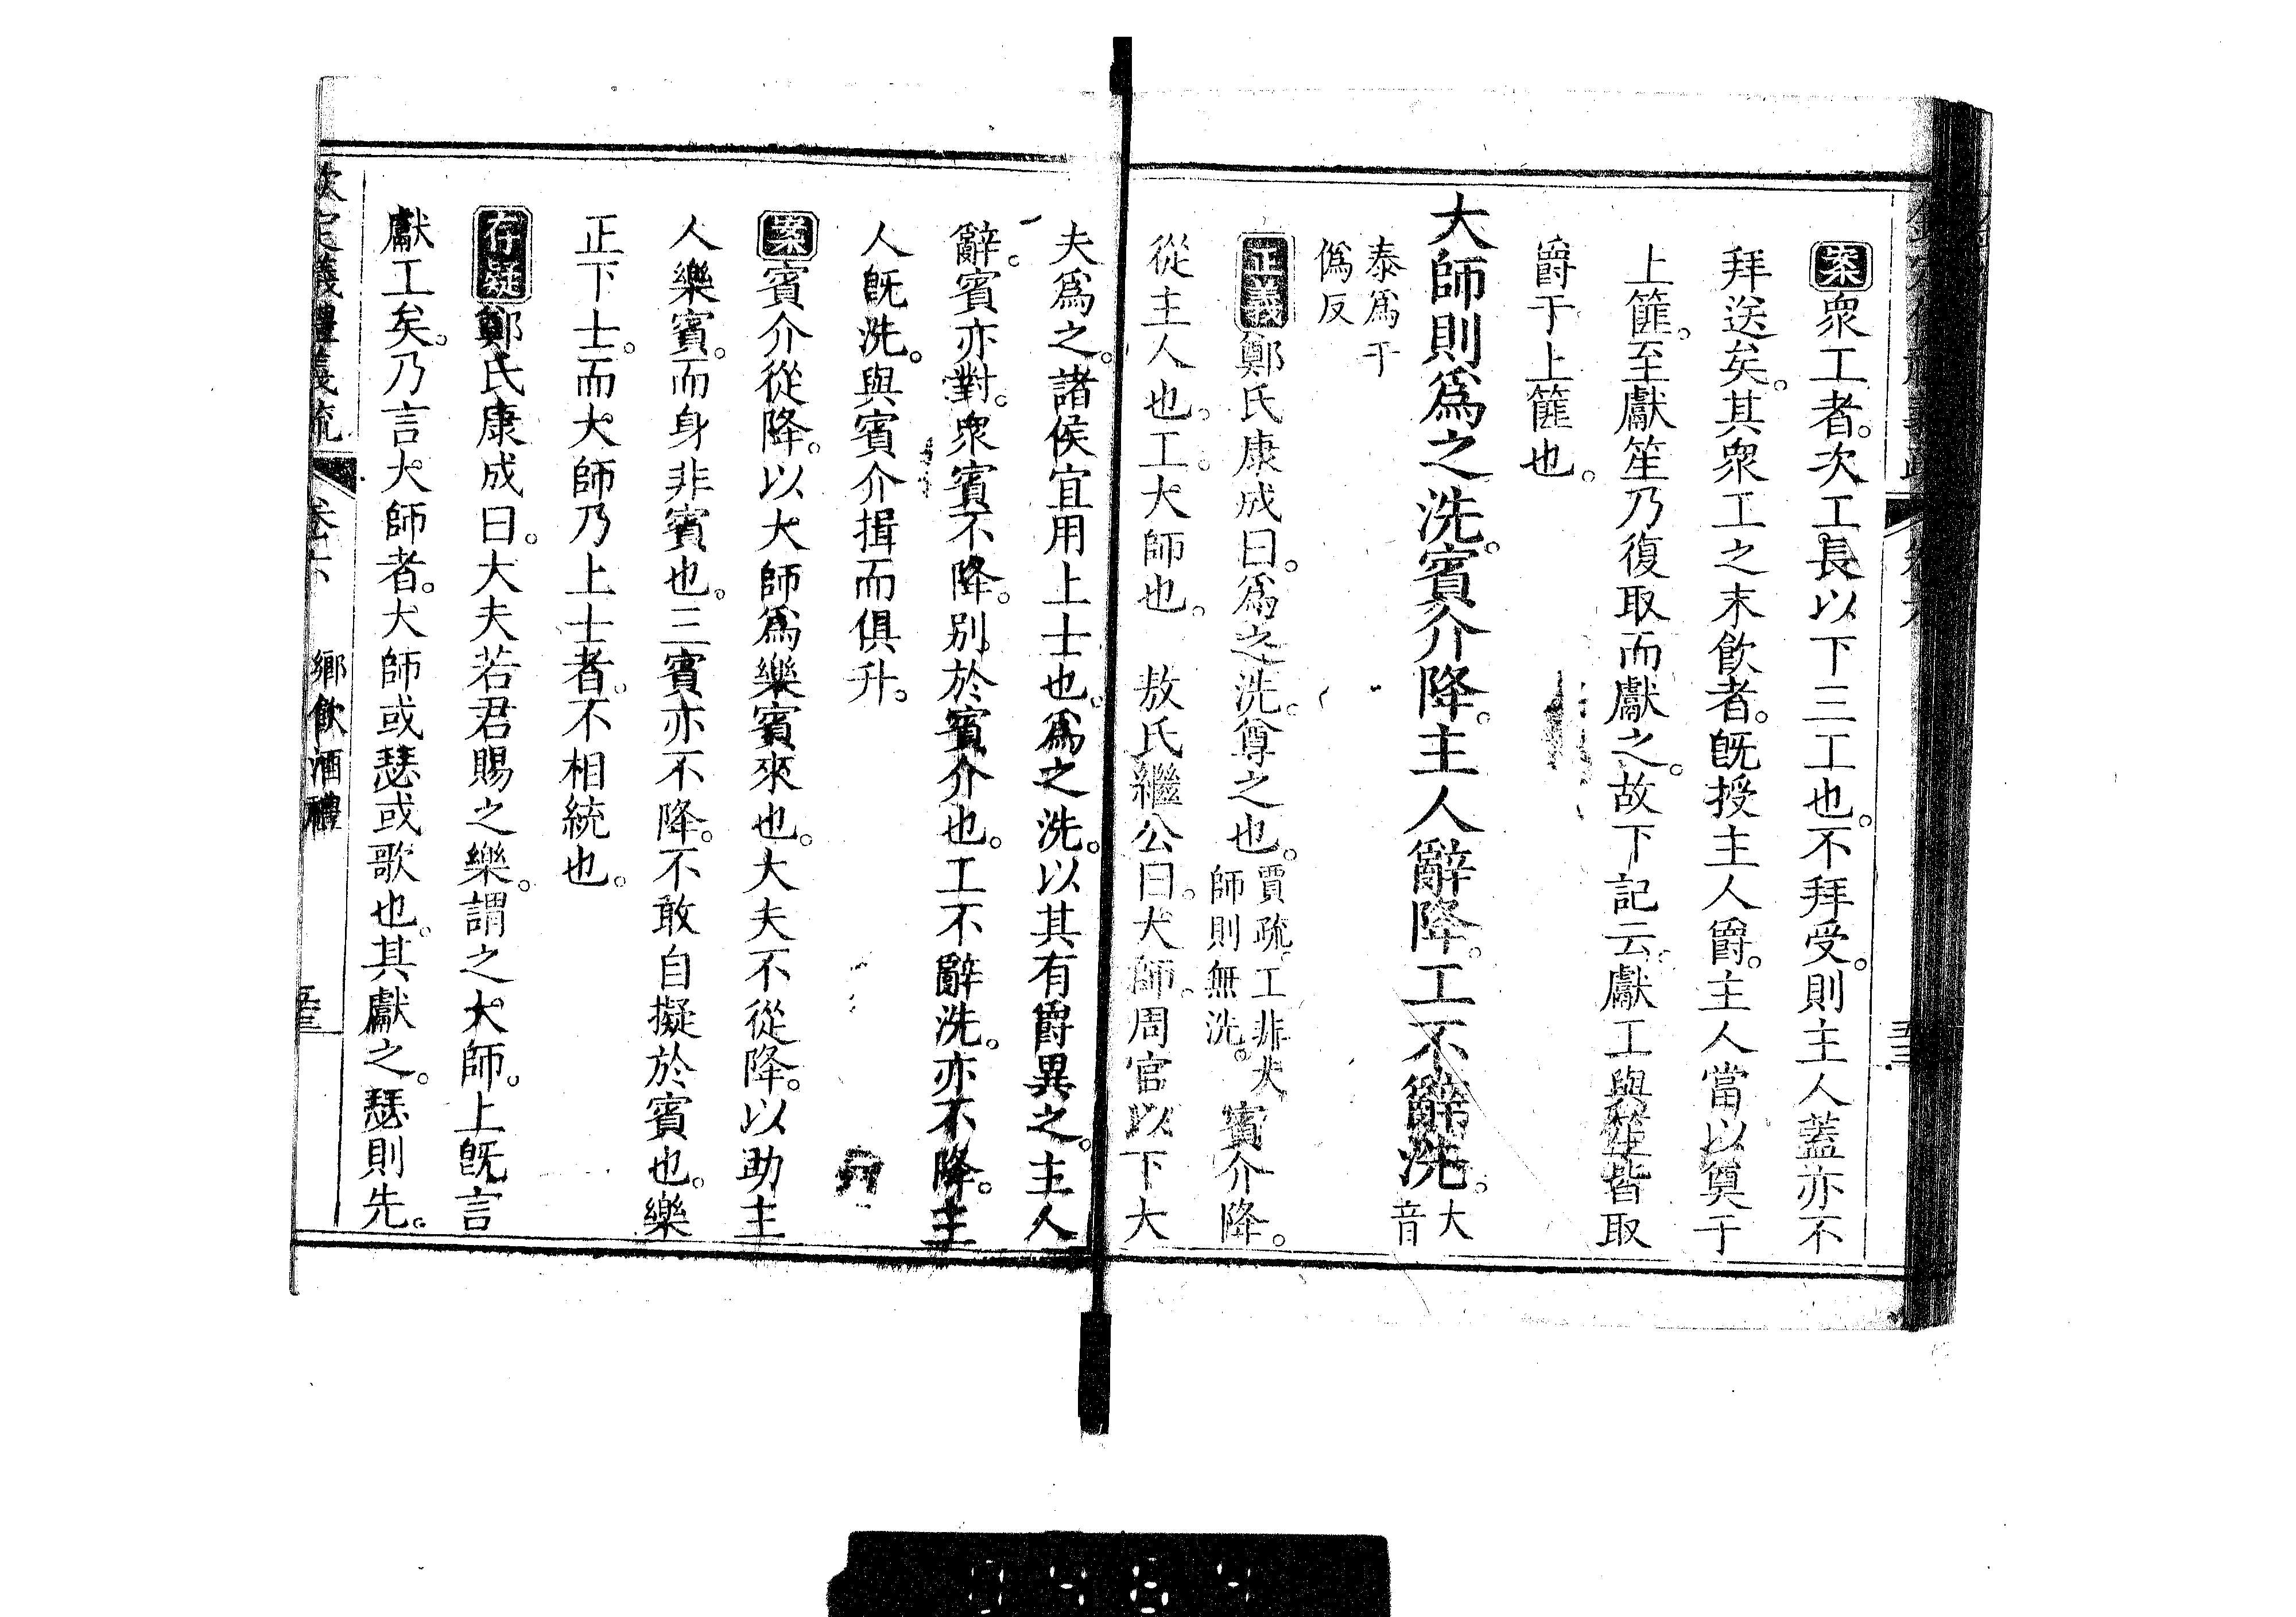 案衆工者。次工長以下三工也。不拜受。則主人蓋亦不
拜送矣。其衆工之末飲者。旣授主人爵。主人當以奠于
上篚。至獻笙乃復取而獻之。故下記云。獻工與笙皆取
爵于上篚也。
大師則爲之洗。賓介降。主人辭降。工不辭洗。大音
泰爲于僞反
正義鄭氏康成曰。爲之洗。尊之也。賈疏。工非大師則無洗。賓介降。
從主人也。工。大師也。 敖氏繼公曰。大師。周官以下大
夫爲之。諸侯宜用上士也。爲之洗。以其有爵異之。主人
辭。賓亦對。衆賓不降。別於賓介也。工不辭洗。亦不降。主
人旣洗。與賓介揖而俱升。
案賓介從降。以大師爲樂賓來也。大夫不從降。以助主
人樂賓。而身非賓也。三賓亦不降。不敢自擬於賓也。樂
正下士。而大師乃上士者。不相統也。
存疑鄭氏康成曰。大夫若君賜之樂。謂之大師。上旣言
獻工矣。乃言大師者。大師或瑟或歌也。其獻之。瑟則先。
欽定儀禮義疏 卷六 鄉飲酒禮